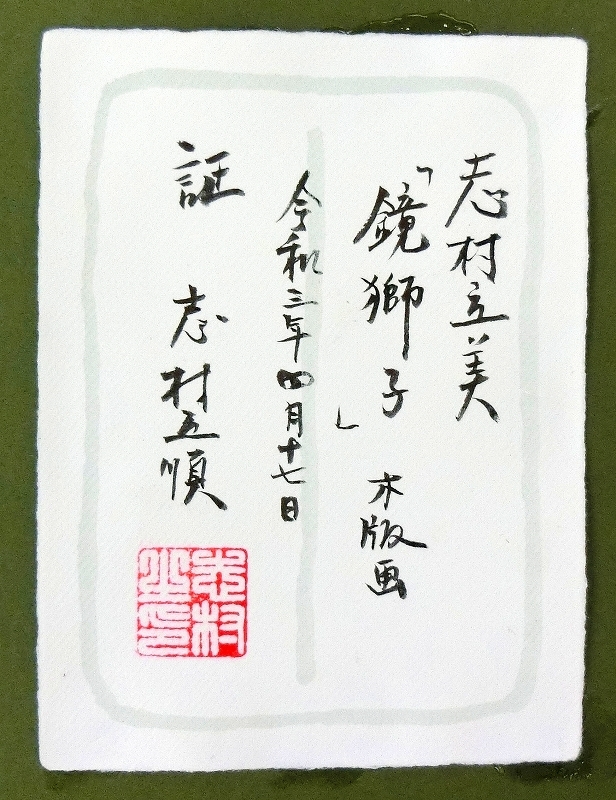 志村立美
「鏡獅子」木版画
令和三年四月十七日
証 志村立順
志村